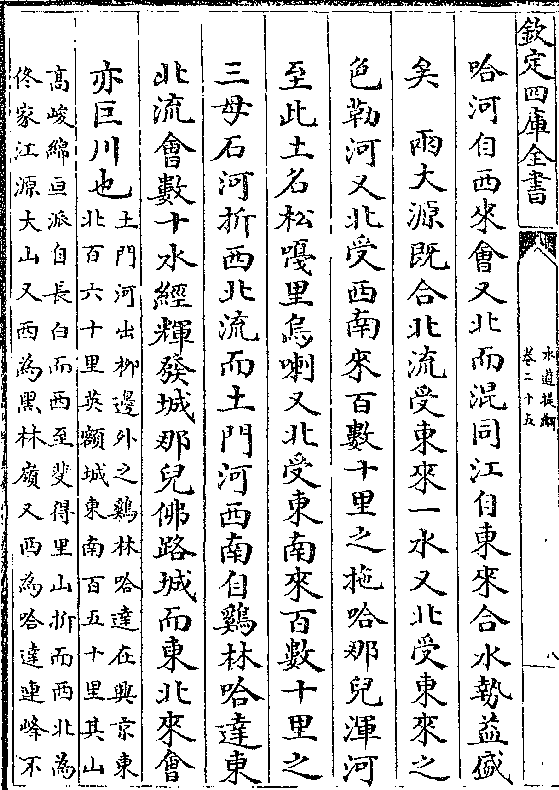 欽定四庫全書
水道提綱
卷二十五
八
哈河自西來會又北而混同江自東來合水勢益盛
矣　兩大源既合北流受東來一水又北受東來之
色勒河又北受西南來百數十里之拖哈那兒渾河
至此土名松嘎里烏喇又北受東南來百數十里之
三母石河折西北流而土門河西南自鷄林哈達東
北流會數十水經輝發城那兒佛路城而東北來會
亦巨川也
土門河出柳邊外之鷄林哈達在興京東
北百六十里英額城東南百五十里其山
高峻綿亘派自長白而西至斐得里山折而西北為
佟家江源大山又西為黑林嶺又西為哈達連峰不